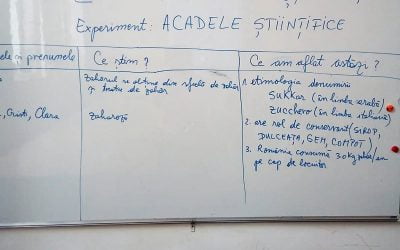 Experiment: ACADELE ȘTIINȚIFICE
prenumele
Ce știm?
Ce am aflat astăzi?
zahărul se obține din sfeclă de zahăr
și trestie de zahăr
Cristi, Clara
zaharoză
1. etimologia denumirii
SUKKAR (în limba arabă)
ZUCCHERO (în limba italiană)
2. are rol de conservant (SIROP,
DULCEAȚA, GEM, COMPOT)
3. România consumă 30 kg zahăr/an
pe cap de locuitor